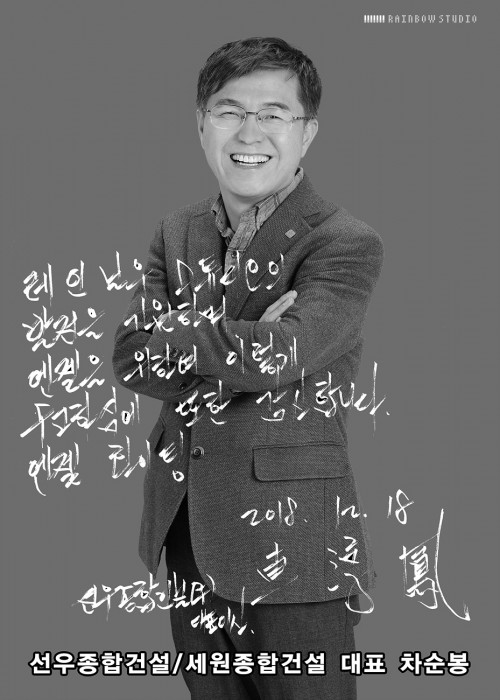 RAINBOW STUDIO
레인보우 스튜디오의
발전을 기원하며
엔젤을 위하여 이렇게
두 감사합니다.
엔젤 화이팅
2018. 12. 18
車 鳳
선우종합건설(주)
대표이사.
선우종합건설/세원종합건설 대표 차순봉